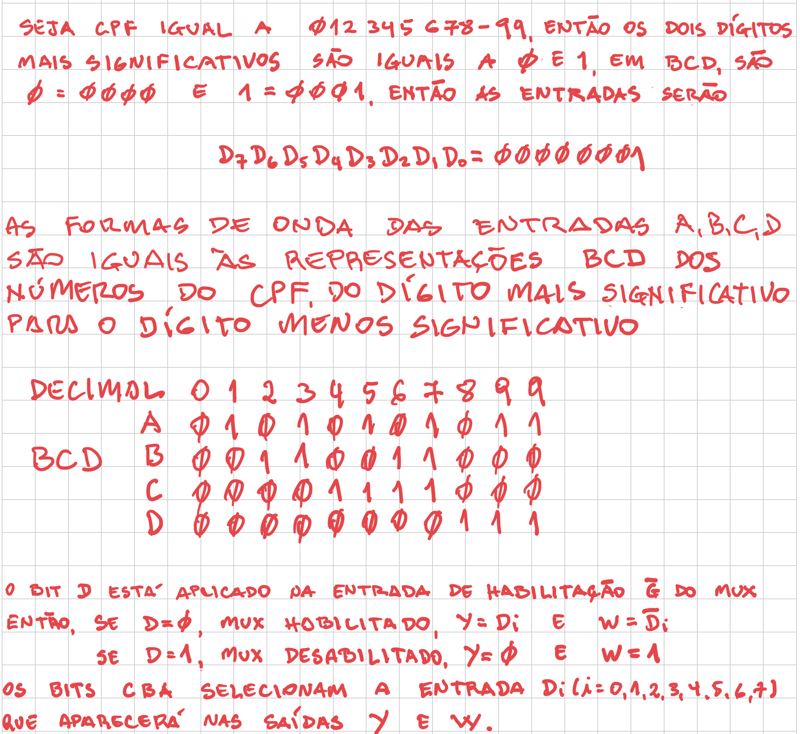 SEJA CPF IGUAL A 012345678-99, ENTÃO OS DOIS DÍGITOS
MAIS SIGNIFICATIVOS SÃO IGUAIS A 0 E 1, EM BCD, SÃO
0 = 0000 E 1 = 0001, ENTÃO AS ENTRADAS SERÃO
D7D6D5D4D3D2D1D0 = 00000001
AS FORMAS DE ONDA DAS ENTRADAS A,B,C,D
SÃO IGUAIS ÀS REPRESENTAÇÕES BCD DOS
NÚMEROS DO CPF, DO DÍGITO MAIS SIGNIFICATIVO
PARA O DÍGITO MENOS SIGNIFICATIVO
DECIMAL 0 1 2 3 4 5 6 7 8 9 9
A 0 1 0 1 0 1 0 1 0 1 1
BCD B 0 0 1 1 0 0 1 1 0 0 0
C 0 0 0 0 1 1 1 1 0 0 0
D 0 0 0 0 0 0 0 0 1 1 1
O BIT D ESTÁ APLICADO NA ENTRADA DE HABILITAÇÃO G̅ DO MUX
ENTÃO, SE D=0, MUX HABILITADO, Y=Di E W=D̅i
SE D=1, MUX DESABILITADO, Y=0 E W=1
OS BITS CBA SELECIONAM A ENTRADA Di (i=0,1,2,3,4,5,6,7)
QUE APARECERÁ NAS SAÍDAS Y E W.